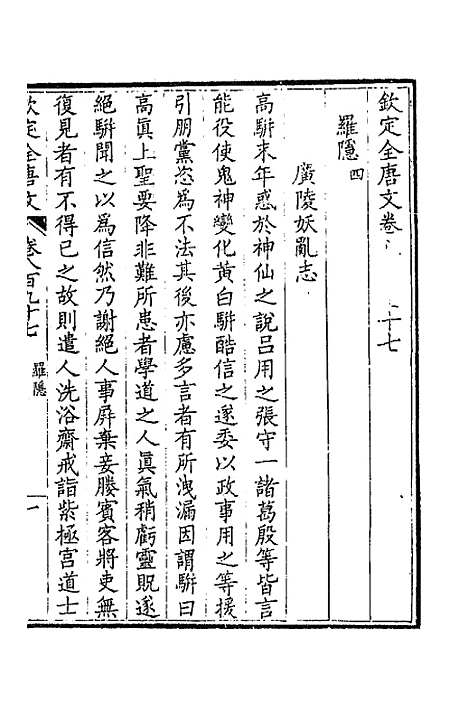 欽定全唐文卷 二十七
羅隱四
廣陵妖亂志
高駢末年惑於神仙之說呂用之張守一諸葛殷等皆言
能役使鬼神變化黃白駢酷信之遂委以政事用之等援
引朋黨恣為不法其後亦慮多言者有所洩漏因謂駢曰
高眞上聖要降非難所患者學道之人眞氣稍虧靈貺遂
絕駢聞之以為信然乃謝絕人事屏棄妾媵賓客將吏無
復見者有不得已之故則遣人洗浴齋戒詣紫極宮道士
欽定全唐文 卷八百九十七 羅隱 一